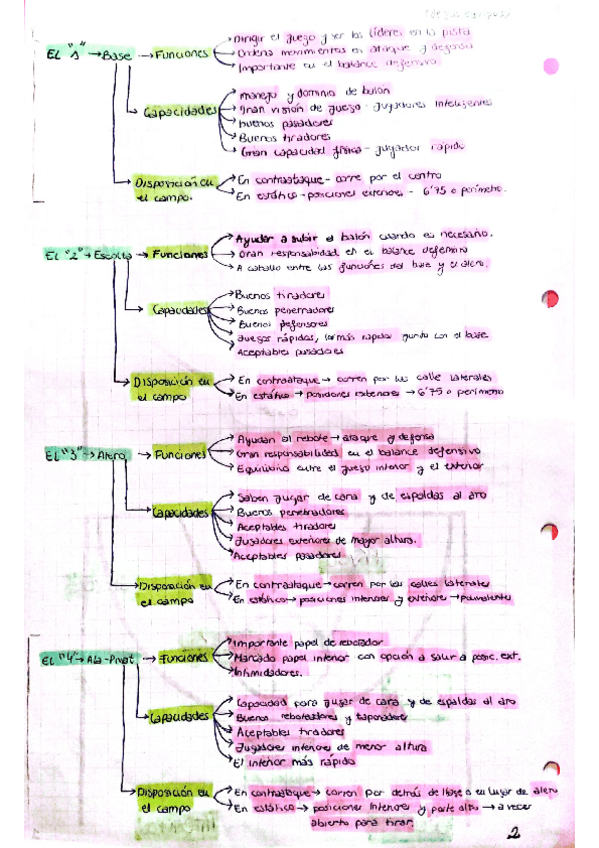 EL "1" → Base → Funciones
Dirigir el juego y ser los líderes en la pista
Ordena movimientos en ataque y defensa
Importante en el balance defensivo
Capacidades
Manejo y dominio de balón
Gran visión de juego - jugadores inteligentes
Buenos pasadores
Buenos tiradores
Gran capacidad física - jugador rápido
Disposición en el campo.
En contraataque - corre por el centro
En estático - posiciones exteriores - 6'75 o perímetro.
EL "2" → Escolta → Funciones
Ayudar a subir el balón cuando es necesario.
Gran responsabilidad en el balance defensivo
A caballo entre las funciones del base y el alero.
Capacidades
Buenos tiradores
Buenos penetradores
Buenos defensores
Juegos rápidos, los más rápidos junto con el base
Aceptables pasadores
Disposición en el campo
En contraataque → corren por las calle laterales
En estático → posiciones exteriores → 6'75 o perímetro
EL "3" → Alero → Funciones
Ayudan al rebote → ataque y defensa
Gran responsabilidad en el balance defensivo
Equilibrio entre el juego interior y el exterior
Capacidades
Saben jugar de cara y de espaldas al aro
Buenos penetradores
Aceptables tiradores
Jugadores exteriores de mayor altura.
Aceptables pasadores
Disposición en el campo
En contraataque → corren por las calles laterales
En estático → posiciones interiores y exteriores → polivalentes
EL "4" → Ala-Pivot → Funciones
Importante papel de reboteador
Marcado papel interior con opción a salir a posic. ext.
Intimidadores.
Capacidades
Capacidad para jugar de cara y de espaldas al aro
Buenos reboteadores y taponadores
Aceptables tiradores
Jugadores interiores de menor altura
El interior más rápido
Disposición en el campo
En contraataque → corren por detrás de llega a su lugar de alero
En estático → posiciones interiores y parte alta → a veces
abierto para tirar.
2